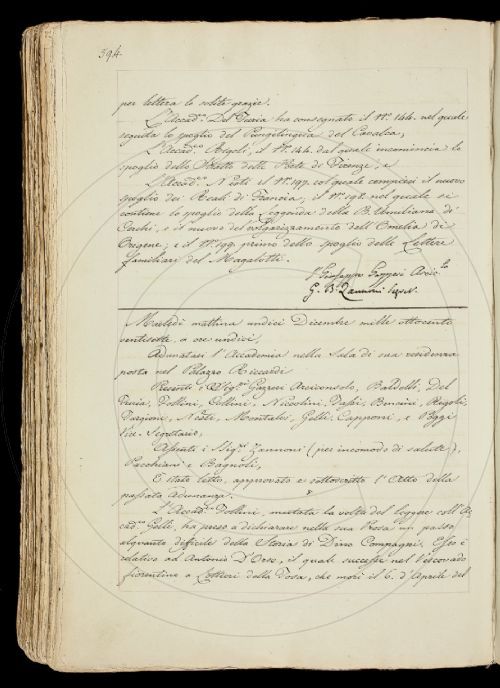 394
per lettera le solite grazie.
L'Accad.co Del Furia ha consegnato il N.o 144. nel quale
seguita lo spoglio del Pungilingua del Cavalca;
L'Accad.co Rigoli, il N.o 144. dal quale incomincia lo
spoglio delle Pistole delle di Firenze; e
L'Accad.co Nesti il N.o 197. col quale compiesi il nuovo
spoglio dei Reali di Francia; il N.o 198. nel quale si
contiene lo spoglio della Leggenda della B. Umiliana de'
Cerchi, e il nuovo del volgarizzamento dell'Omelia di
Origene; e il N.o 199. primo dello spoglio delle Lettere
familiari del Magalotti.
Giuseppe Gazzeri Arcic.lo
G. B. Zannoni Segret.
Martedì mattina undici Dicembre mille ottocento
ventisette, a ore undici,
Adunatasi l'Accademia nella Sala di sua residenza
posta nel Palazzo Riccardi
Presenti i SS.ig.ri Gazzeri Arciconsolo, Baldelli, Del
Furia, Follini, Collini, Niccolini, Bencini, Rigoli,
Targioni, Nesti, Montalvi, Gelli, Capponi, e Poggi
Vice-Segretario,
Assenti i Sig.ri Zannoni (per incomodo di salute),
Pacchiani e Bagnoli,
È stato letto, approvato e sottoscritto l'Atto della
passata Adunanza.
L'Accad.co Follini, mutata la volta del leggere coll'Ac
cad.co Gelli, ha preso a dichiarare nella sua Prosa un passo
alquanto difficile della Storia di Dino Compagni. Esso è
relativo ad Antonio D'Orso, il quale successe nel Vescovado
fiorentino a Lottieri della Tosa, che morì il 6. d'Aprile del